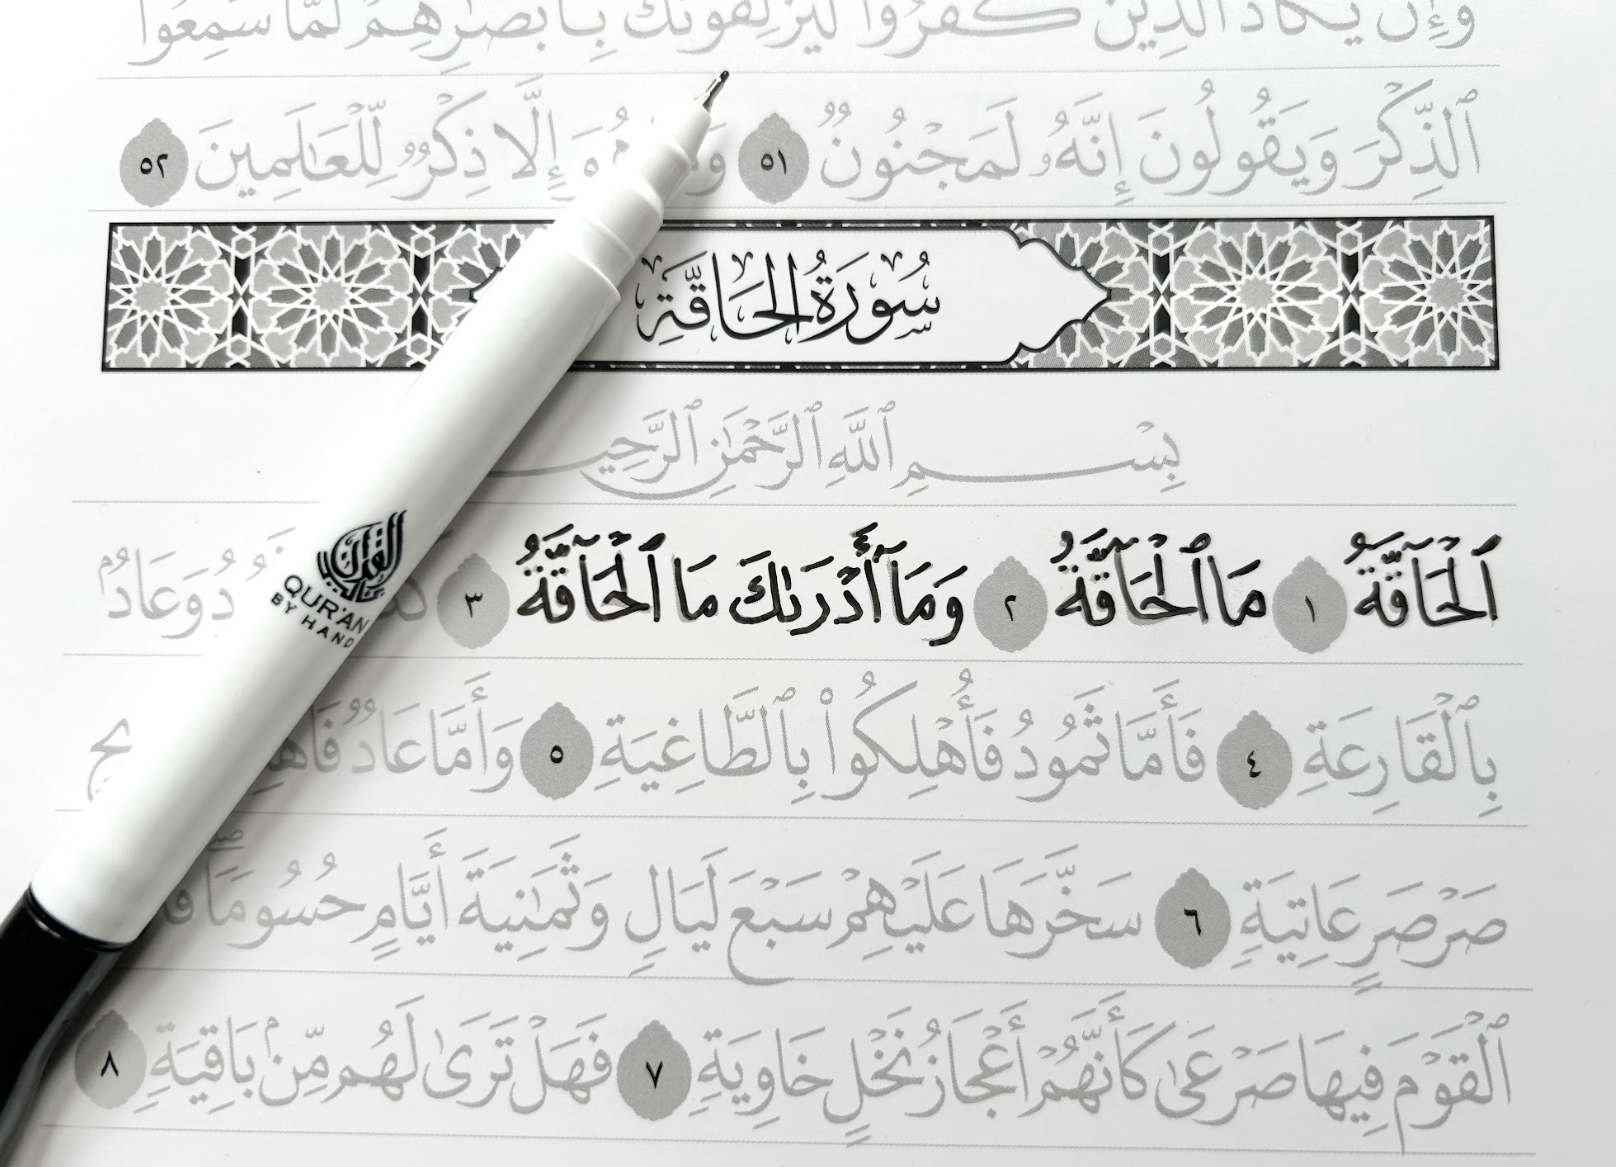 وَإِن يَكَادُ ٱلَّذِينَ كَفَرُوا۟ لَيُزْلِقُونَكَ بِأَبْصَـٰرِهِمْ لَمَّا سَمِعُوا۟
ٱلذِّكْرَ وَيَقُولُونَ إِنَّهُۥ لَمَجْنُونٌ ٥١ إِلَّا ذِكْرٌ لِّلْعَـٰلَمِينَ ٥٢
سُورَةُ الحَاقَّةِ
بِسْمِ ٱللَّهِ ٱلرَّحْمَـٰنِ
ٱلْحَآقَّةُ ١ مَا ٱلْحَآقَّةُ ٢ وَمَآ أَدْرَىٰكَ مَا ٱلْحَآقَّةُ ٣ وَعَادٌۢ
بِٱلْقَارِعَةِ ٤ فَأَمَّا ثَمُودُ فَأُهْلِكُوا۟ بِٱلطَّاغِيَةِ ٥ وَأَمَّا عَادٌ
صَرْصَرٍ عَاتِيَةٍ ٦ سَخَّرَهَا عَلَيْهِمْ سَبْعَ لَيَالٍ وَثَمَـٰنِيَةَ أَيَّامٍ حُسُومًا
ٱلْقَوْمَ فِيهَا صَرْعَىٰ كَأَنَّهُمْ أَعْجَازُ نَخْلٍ خَاوِيَةٍ ٧ فَهَلْ تَرَىٰ لَهُم مِّنۢ بَاقِيَةٍ ٨
القرآن
QUR'AN
BY HAND